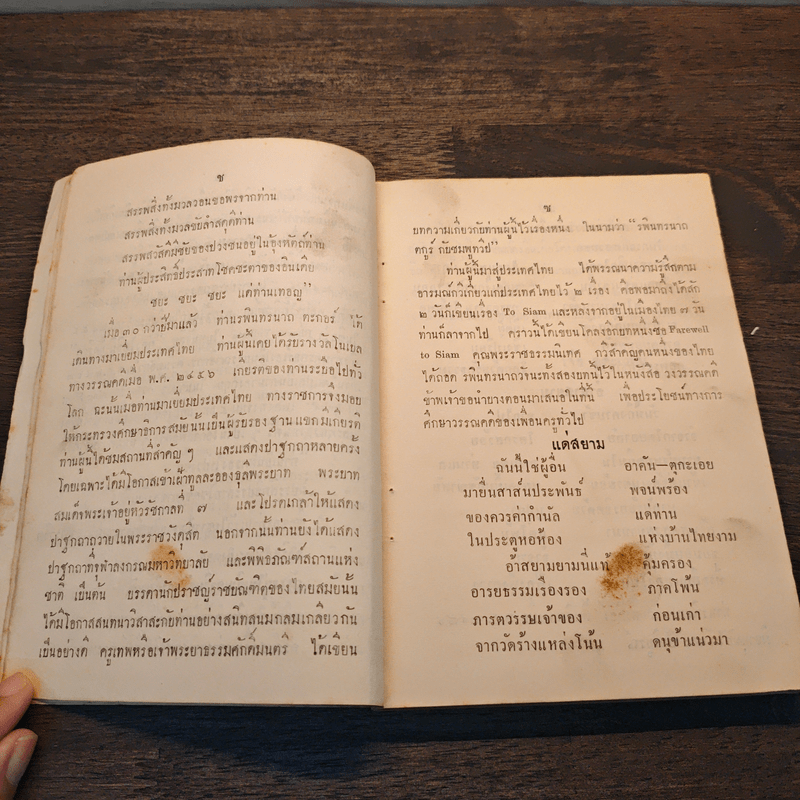 ช
สรรพสิ่งทั้งมวลวอนขอพรจากท่าน
สรรพสิ่งทั้งมวลขับลำสดุดีท่าน
สรรพสวัสดิมีชัยของปวงชนอยู่ในอุ้งหัตถ์ท่าน
ท่านผู้ประสิทธิ์ประสาทโชคชะตาของอินเดีย
ชยะ ชยะ ชยะ แด่ท่านเทอญ"
เมื่อ ๓๐ กว่าปีมาแล้ว ท่านรพินทรนาถ ตะกอร์ ได้
เดินทางมาเยี่ยมประเทศไทย ท่านผู้นี้เคยได้รับรางวัลโนเบล
ทางวรรณคดีเมื่อ พ.ศ. ๒๔๕๖ เกียรติของท่านระบือไปทั่ว
โลก ฉะนั้นเมื่อท่านมาเยี่ยมประเทศไทย ทางราชการจึงมอบ
ให้กระทรวงศึกษาธิการสมัยนั้นเป็นผู้รับรองฐานแขกมีเกียรติ
ท่านผู้นี้ได้ชมสถานที่สำคัญ ๆ และแสดงปาฐกถาหลายครั้ง
โดยเฉพาะได้มีโอกาสเข้าเฝ้าทูลละอองธุลีพระบาท พระบาท
สมเด็จพระเจ้าอยู่หัวรัชกาลที่ ๗ และโปรดเกล้าให้แสดง
ปาฐกถาถวายในพระราชวังดุสิต นอกจากนั้นท่านยังได้แสดง
ปาฐกถาที่จุฬาลงกรณมหาวิทยาลัย และพิพิธภัณฑ์สถานแห่ง
ชาติ เป็นต้น บรรดานักปราชญ์ราชบัณฑิตของไทยสมัยนั้น
ได้มีโอกาสสนทนาวิสาสะกับท่านอย่างสนิทสนมกลมเกลียวกัน
เป็นอย่างดี ครูเทพหรือเจ้าพระยาธรรมศักดิ์มนตรี ได้เขียน
ซ
บทความเกี่ยวกับท่านผู้นี้ไว้เรื่องหนึ่ง ในนามว่า "รพินทรนาถ
ตกูร์ กับชมพูทวีป"
ท่านผู้นี้มาสู่ประเทศไทย ได้พรรณนาความรู้สึกตาม
อารมณ์กวีเกี่ยวแก่ประเทศไทยไว้ ๒ เรื่อง คือพอมาถึงได้สัก
๒ วันก็เขียนเรื่อง To Siam และหลังจากอยู่ในเมืองไทย ๗ วัน
ท่านก็ลาจากไป คราวนี้ได้เขียนโคลงอีกบทหนึ่งชื่อ Farewell
to Siam คุณพระราชธรรมนิเทศ กวีสำคัญคนหนึ่งของไทย
ได้ถอด รพินทรนาถวัจนะทั้งสองบทนี้ไว้ในหนังสือ วงวรรณคดี
ข้าพเจ้าขอนำบางตอนมาเสนอในที่นี้ เพื่อประโยชน์ทางการ
ศึกษาวรรณคดีของเพื่อนครูทั่วไป
แด่สยาม
ฉันนี้ใช่ผู้อื่น อาคัน—ตุกะเอย
มายื่นสาส์นประพันธ์ พจน์พร้อง
ของควรค่ากำนัล แด่ท่าน
ในประตูหอห้อง แห่งบ้านไทยงาม
อ้าสยามยามนี้แท้ คุ้มครอง
อารยธรรมเรืองรอง ภาคโพ้น
ภารตวรรษเจ้าของ ก่อนเก่า
จากวัดร้างแหล่งโน้น ดนุข้าแน่วมา